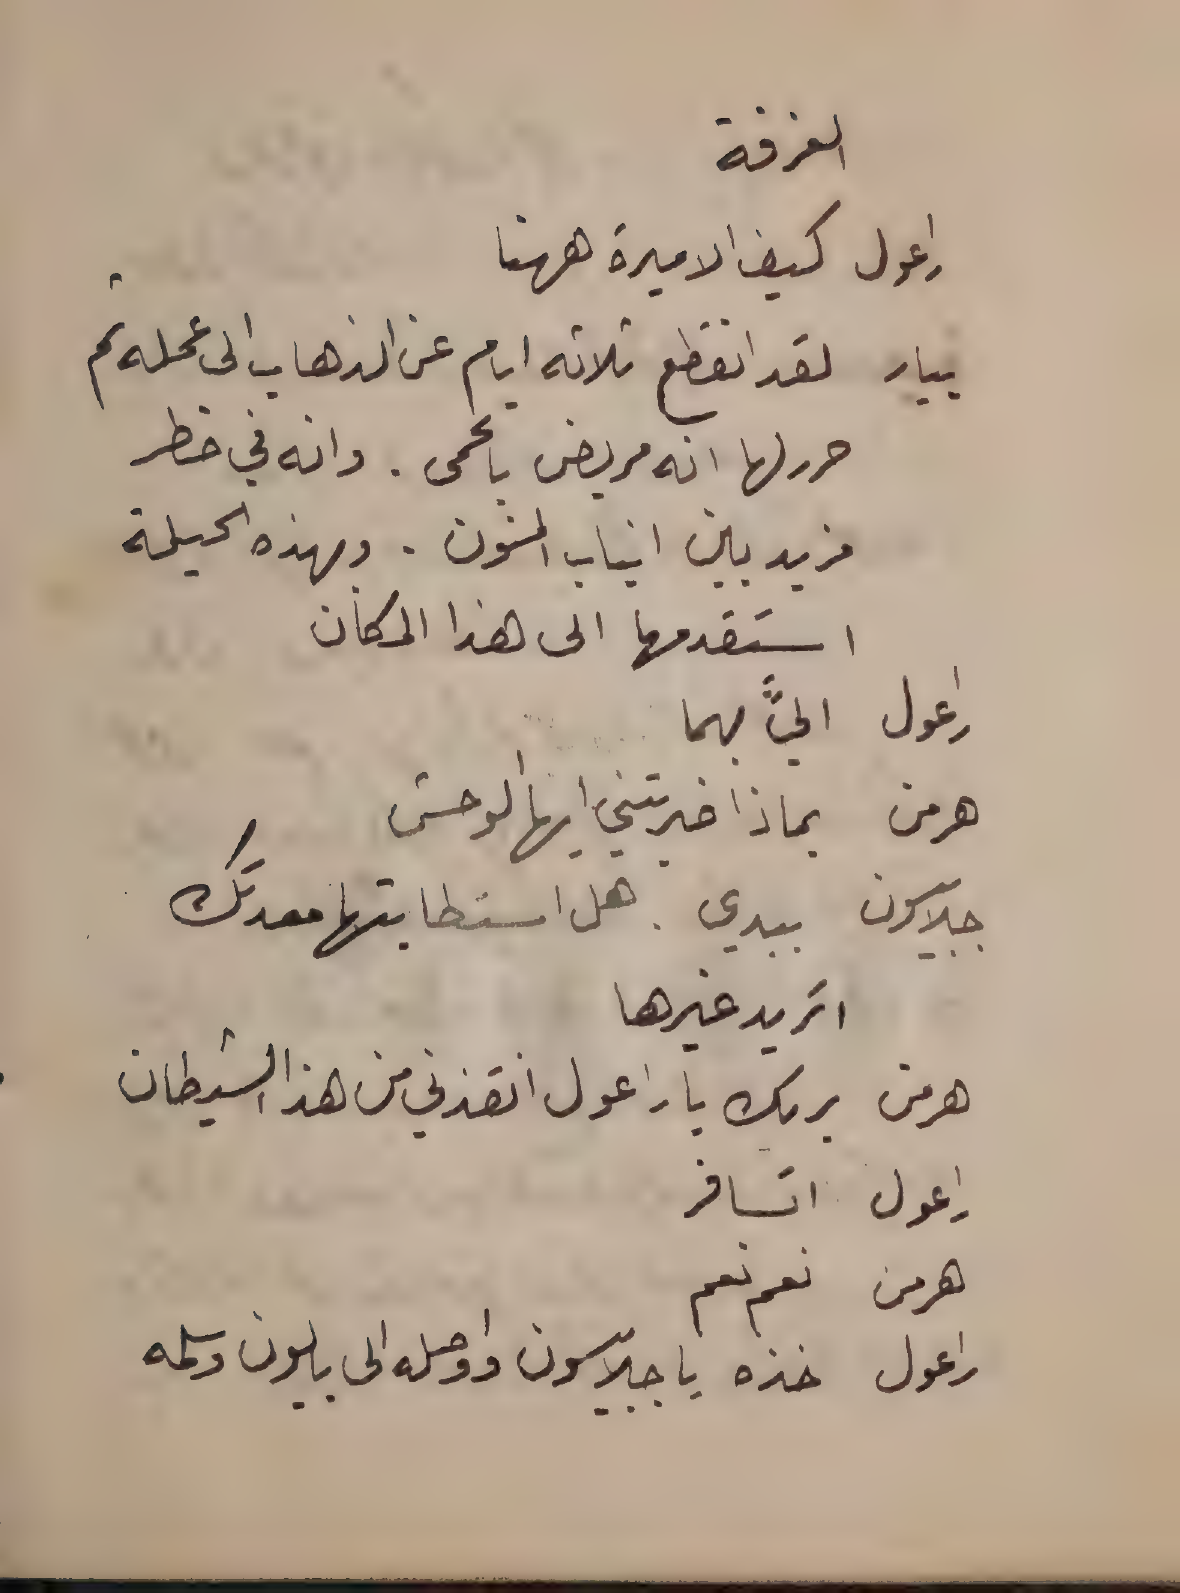 الغرفة
راعول كيف الاميرة ههنا
بيار لقد انقطع ثلاثه ايام عن الذهاب الى عمله ثم
حرر لها انه مريض بالحمى . وانه في خطر
مزيد بين انياب المنون . وبهذه الحيلة
استقدمها الى هذا المكان
راعول اليَّ بهما
هرمن بماذا ضربتني ايها الوحش
جيلاسون بيدي . هل استطابتها معدتك
اتريد غيرها
هرمن بربك يا راعول انقذني من هذا الشيطان
راعول اتسافر
هرمن نعم نعم
راعول خذه يا جيلاسون واوصله الى بايون وسلمه